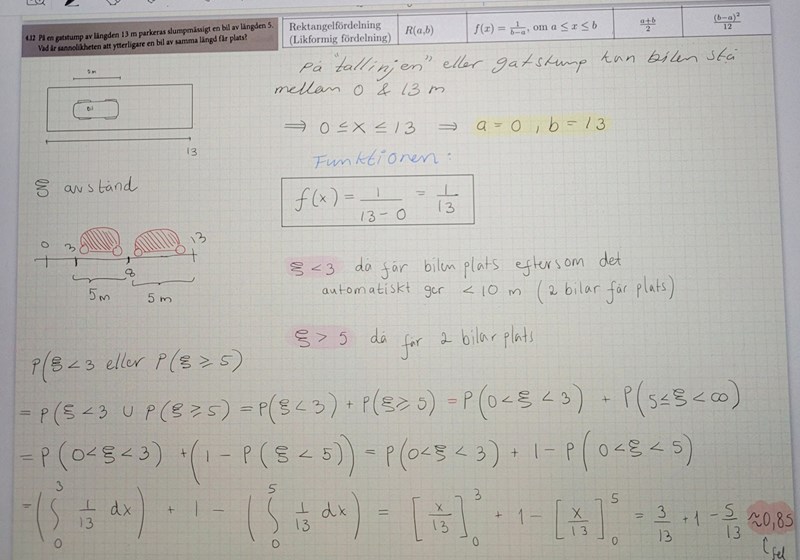 4.12 På en gatstump av längden 13 m parkeras slumpmässigt en bil av längden 5.
Vad är sannolikheten att ytterligare en bil av samma längd får plats?
Rektangelfördelning
(Likformig fördelning)
R(a,b)
f(x) = 1/(b-a), om a ≤ x ≤ b
(a+b)/2
(b-a)²/12
5m
Bil
13
ξ avstånd
0 3 8 13
5m 5m
På "tallinjen" eller gatstump kan bilen stå
mellan 0 & 13 m
⇒ 0 ≤ x ≤ 13 ⇒ a = 0, b = 13
Funktionen:
f(x) = 1/(13-0) = 1/13
ξ < 3 då får bilen plats eftersom det
automatiskt ger < 10 m (2 bilar får plats)
ξ > 5 då får 2 bilar plats
P(ξ < 3 eller P(ξ ≥ 5)
= P(ξ < 3 ∪ P(ξ ≥ 5) = P(ξ < 3) + P(ξ ≥ 5) = P(0 < ξ < 3) + P(5 ≤ ξ < ∞)
= P(0 < ξ < 3) + (1 - P(ξ < 5)) = P(0 < ξ < 3) + 1 - P(0 < ξ < 5)
= (∫₀³ 1/13 dx) + 1 - (∫₀⁵ 1/13 dx) = [x/13]₀³ + 1 - [x/13]₀⁵ = 3/13 + 1 - 5/13 ≈ 0,85
fel